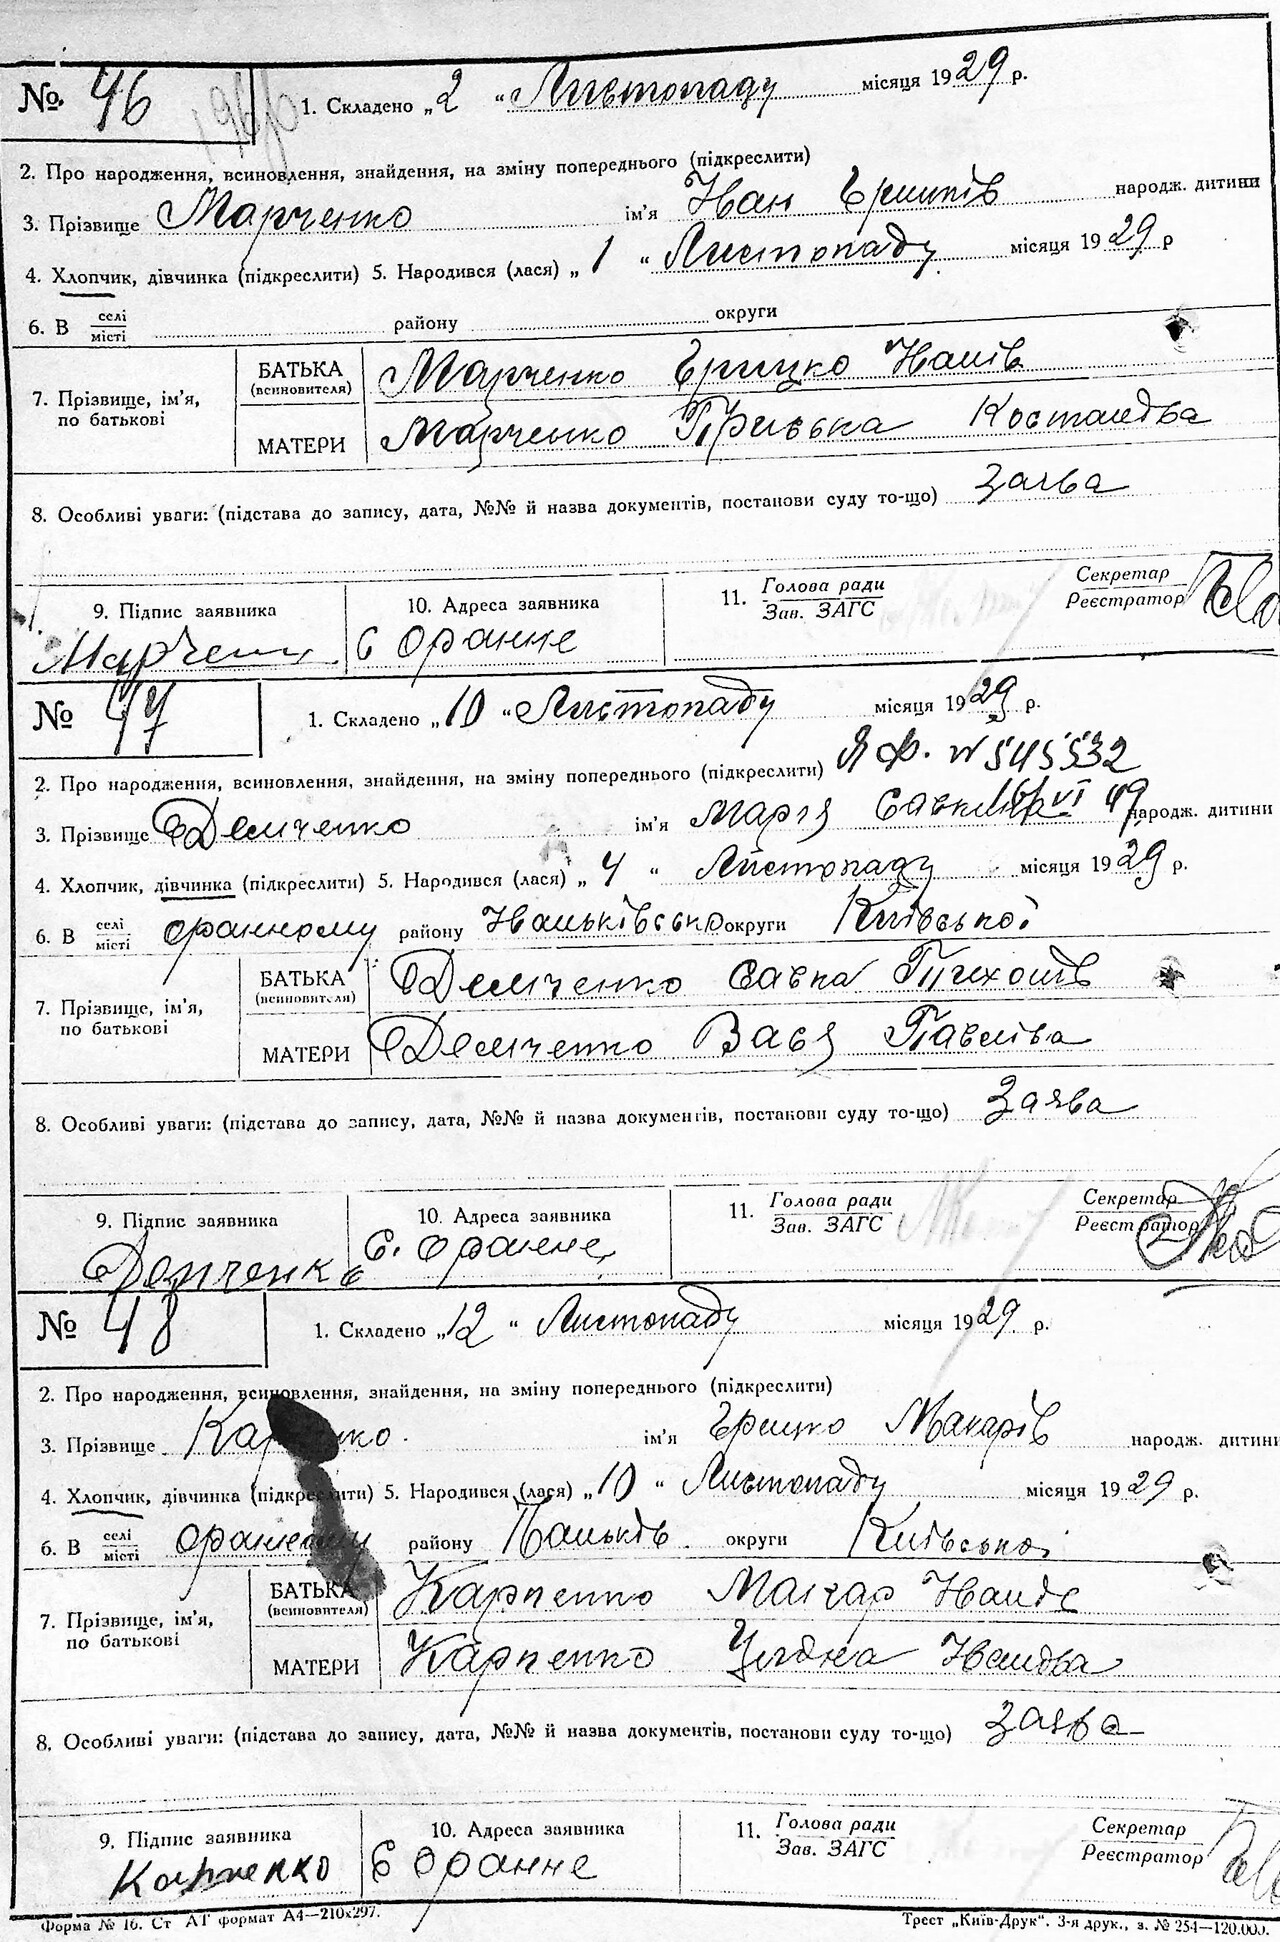 № 46
1. Складено „2" Листопаду місяця 1929 р.
2. Про народження, всиновлення, знайдення, на зміну попереднього (підкреслити)
3. Прізвище Марченко ім'я Іван Грицків народж. дитини
4. Хлопчик, дівчинка (підкреслити) 5. Народився (лася) „1" Листопаду місяця 1929 р
6. В селі місті району округи
7. Прізвище, ім'я, по батькові
БАТЬКА (всиновителя) Марченко Грицко Іванів
МАТЕРИ Марченко
8. Особливі уваги: (підстава до запису, дата, №№ й назва документів, постанови суду то-що) Заява
9. Підпис заявника 10. Адреса заявника 11. Голова ради Зав. ЗАГС Секретар Реєстратор
Марченко с Оранне
№ 47
1. Складено „10" Листопаду місяця 1929 р.
ЯФ. N 545532
2. Про народження, всиновлення, знайдення, на зміну попереднього (підкреслити)
3. Прізвище Демченко ім'я Марія народж. дитини
4. Хлопчик, дівчинка (підкреслити) 5. Народився (лася) „4" Листопаду місяця 1929 р.
6. В селі місті Оранному району округи Київської
7. Прізвище, ім'я, по батькові
БАТЬКА (всиновителя) Демченко Савка Тихонів
МАТЕРИ Демченко Павлівa
8. Особливі уваги: (підстава до запису, дата, №№ й назва документів, постанови суду то-що) Заява
9. Підпис заявника 10. Адреса заявника 11. Голова ради Зав. ЗАГС Секретар Реєстратор
Демченк с. Оранне
№ 48
1. Складено „12" Листопаду місяця 1929 р.
2. Про народження, всиновлення, знайдення, на зміну попереднього (підкреслити)
3. Прізвище Карпенко ім'я Грицко Макарів народж. дитини
4. Хлопчик, дівчинка (підкреслити) 5. Народився (лася) „10" Листопаду місяця 1929 р.
6. В селі місті Оранному району округи Київської
7. Прізвище, ім'я, по батькові
БАТЬКА (всиновителя) Карпенко Макар Іванів
МАТЕРИ Карпенко
8. Особливі уваги: (підстава до запису, дата, №№ й назва документів, постанови суду то-що) Заява
9. Підпис заявника 10. Адреса заявника 11. Голова ради Зав. ЗАГС Секретар Реєстратор
Карпенко с Оранне
Форма № 16. Ст А1 формат А4—210x297. Трест „Київ-Друк". 3-я друк., з. № 254—120.000.